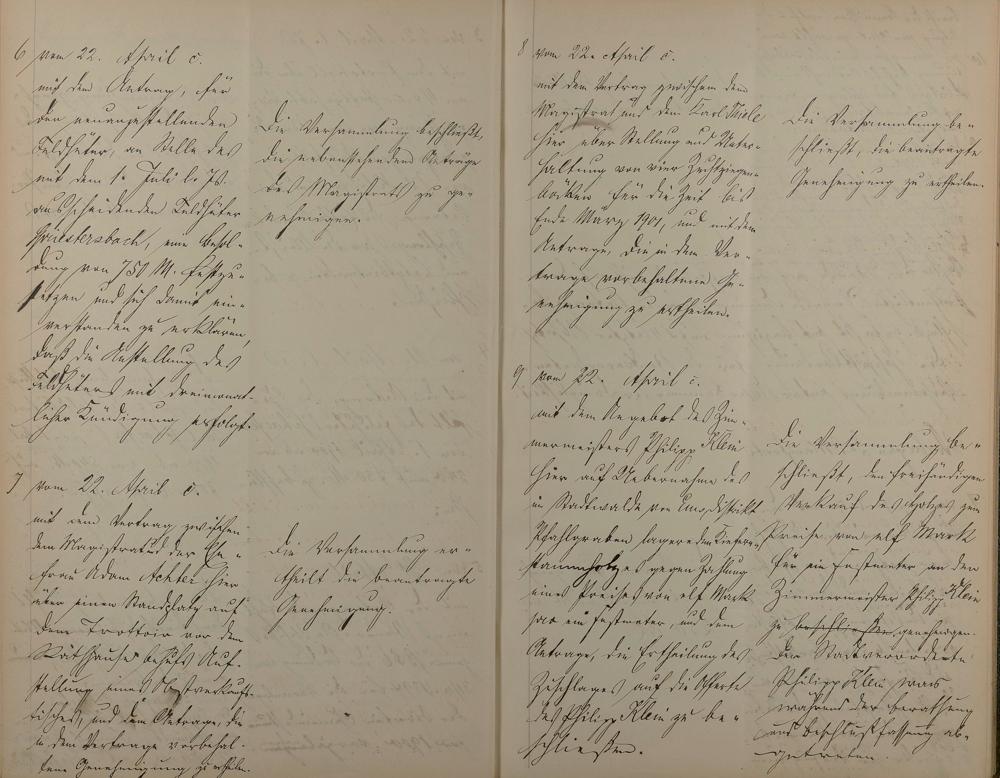 6 vom 22. April c.
mit dem Antrag, für
den neuanzustellenden
Feldhüter, an Stelle des
mit dem 1. Juli l. Js.
ausscheidenden Feldhüter
Griestersbach, eine Besol-
dung von 750 M. festzu-
setzen und sich damit ein-
verstanden zu erklären,
daß die Anstellung des
Feldhüters mit dreimonat-
licher Kündigung erfolgt.
Die Versammlung beschließt,
die nebenstehenden Anträge
des Magistrats zu ge-
nehmigen.
7 vom 22. April c.
mit dem Vertrag zwischen
dem Magistrat und der Ehe-
frau Adam Achter hier
über einen Standplatz auf
dem Trottoir vor dem
Rathhause behufs Auf-
stellung eines Obstverkaufs-
tisches, und dem Antrage, die
in dem Vertrage vorbehal-
tene Genehmigung zu ertheilen.
Die Versammlung er-
theilt die beantragte
Genehmigung.
8 vom 22. April c.
mit dem Vertrag zwischen dem
Magistrat und dem Karl Thiele
hier über Stellung und Unter-
haltung von vier Zuchtziegen-
böcken für die Zeit bis
Ende März 1901, und mit dem
Antrage, die in dem Ver-
trage vorbehaltene Ge-
nehmigung zu ertheilen.
Die Versammlung be-
schließt, die beantragte
Genehmigung zu ertheilen.
9 vom 22. April c.
mit dem Angebot des Zim-
mermeisters Philipp Klein
hier auf Uebernahme des
im Stadtwalde von Distrikt
Pfahlgraben lagernden Kiefern-
stammholzes gegen Zahlung
eines Preises von elf Mark
pro ein Festmeter, und dem
Antrage, die Ertheilung des
Zuschlages auf die Offerte
des Philipp Klein zu be-
schließen.
Die Versammlung be-
schließt, den freihändigen
Verkauf des Holzes zum
Preise von elf Mark
für ein Festmeter an den
Zimmermeister Philipp Klein
zu beschließen genehmigen.
Der Stadtverordnete
Philipp Klein war
während der Berathung
und Beschlußfassung ab-
getreten.